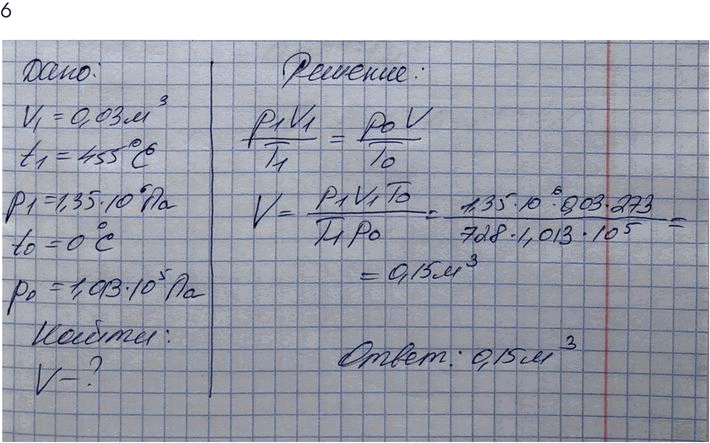 6
Дано:
V₁ = 0,03 м³
t₁ = 455°C
p₁ = 1,35·10⁶ Па
t₀ = 0°C
p₀ = 1,013·10⁵ Па
Найти:
V – ?
Решение:
p₁V₁/T₁ = p₀V/T₀
V = p₁V₁T₀/T₁p₀ = 1,35·10⁶·0,03·273/728·1,013·10⁵ =
= 0,15 м³
Ответ: 0,15 м³